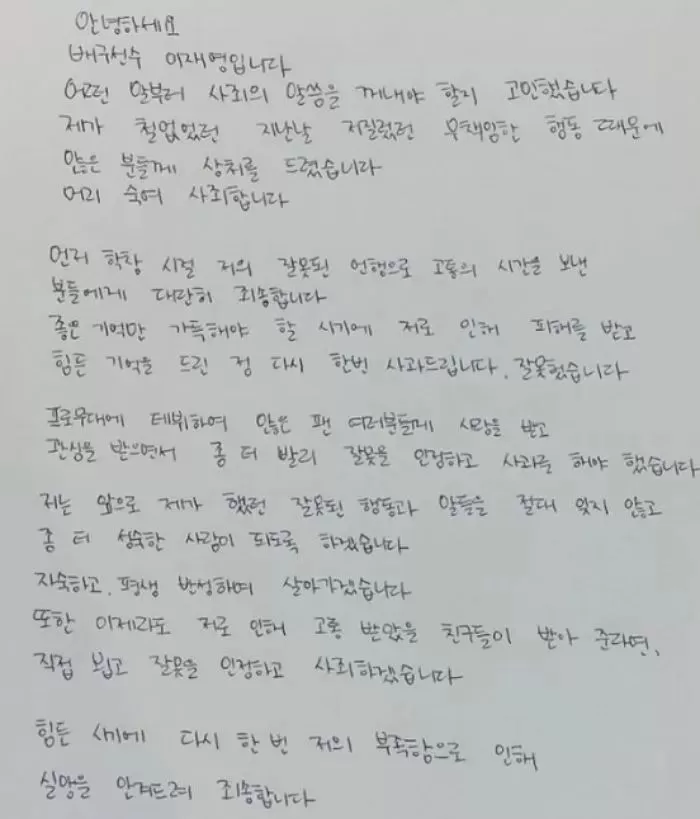 안녕하세요
배구선수 이재영입니다
어떤 말부터 사죄의 말씀을 꺼내야 할지 고민했습니다
제가 철없었던 지난날 저질렀던 무책임한 행동 때문에
많은 분들께 상처를 드렸습니다
머리 숙여 사죄합니다
먼저 학창 시절 저의 잘못된 언행으로 고통의 시간을 보낸
분들에게 대단히 죄송합니다
좋은 기억만 가득해야 할 시기에 저로 인해 피해를 받고
힘든 기억을 드린 점 다시 한번 사과드립니다. 잘못했습니다
프로무대에 데뷔하여 많은 팬 여러분들께 사랑을 받고
관심을 받으면서 좀 더 빨리 잘못을 인정하고 사과를 해야 했습니다
저는 앞으로 제가 했던 잘못된 행동과 말들을 절대 잊지 않고
좀 더 성숙한 사람이 되도록 하겠습니다
자숙하고, 평생 반성하며 살아가겠습니다
또한 이제라도 저로 인해 고통 받았을 친구들이 받아 준다면,
직접 뵙고 잘못을 인정하고 사죄하겠습니다
힘든 시기에 다시 한 번 저의 부족함으로 인해
실망을 안겨드려 죄송합니다